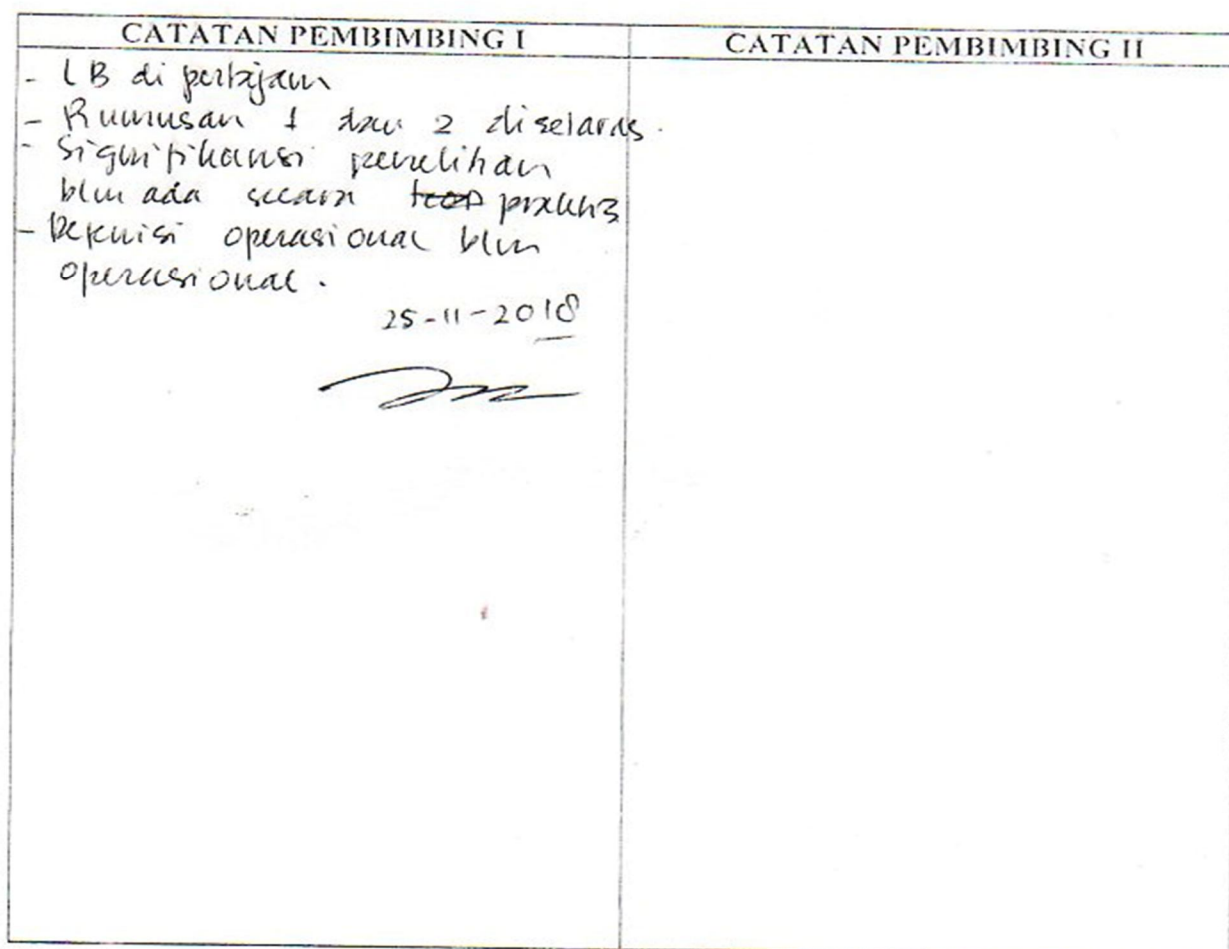 CATATAN PEMBIMBING I
CATATAN PEMBIMBING II
- LB di pertajam
- Rumusan 1 dan 2 diselaras.
- Signifikansi penelitian
blm ada secara praktis
- Definisi operasional blm
operasional.
25-11-2018